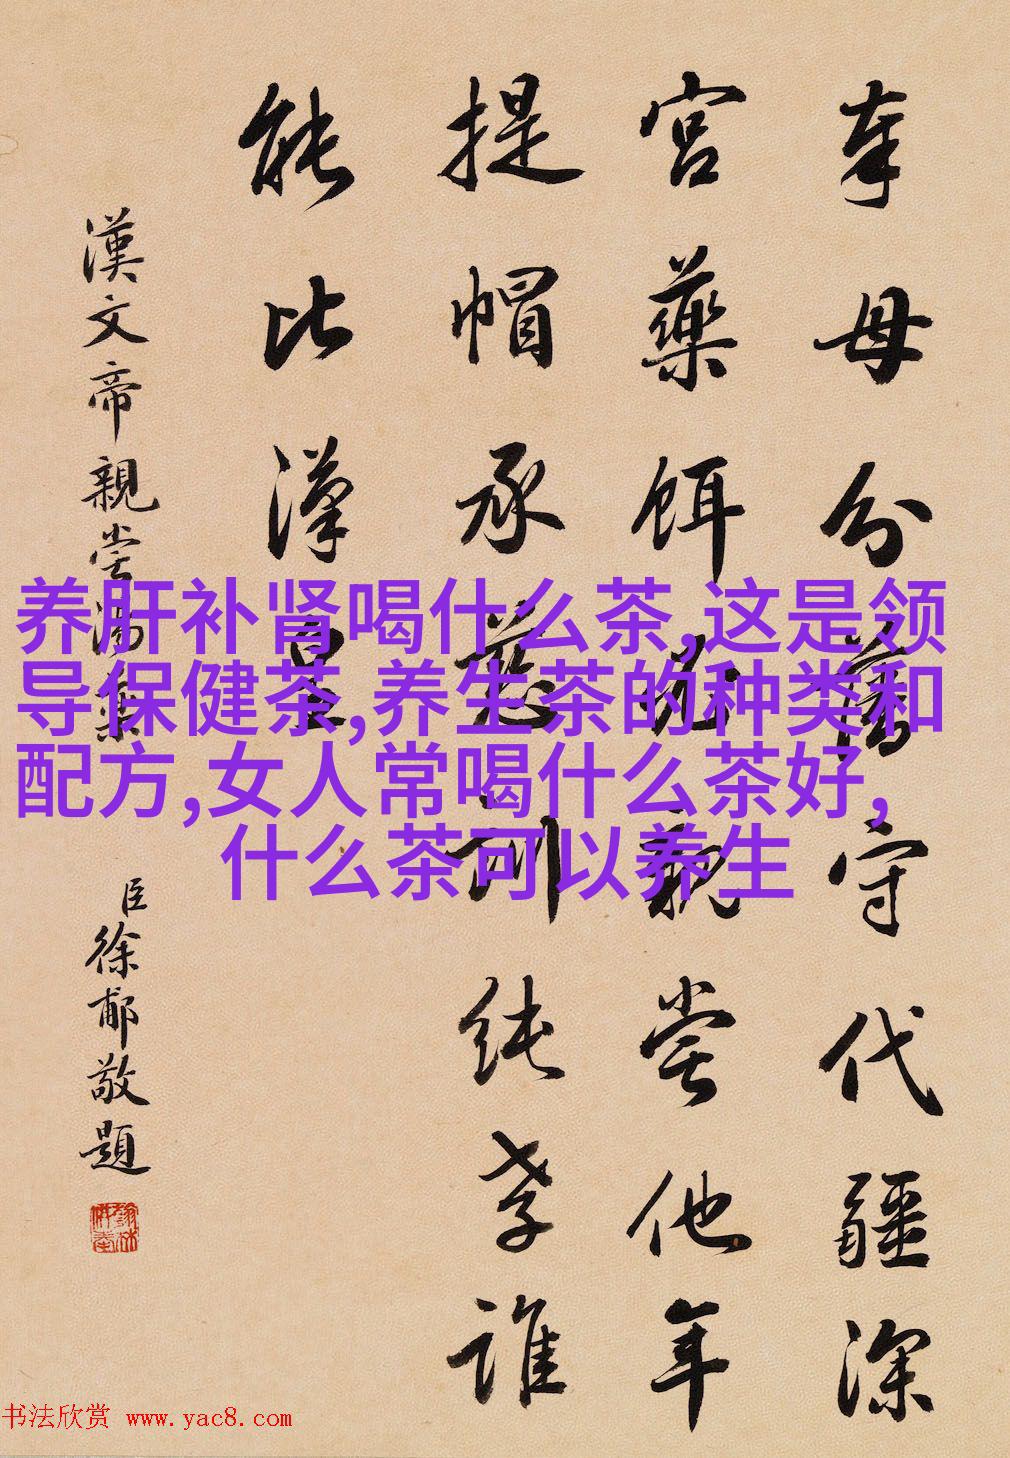 奉母分藩守代疆深
宮藥餌親嘗他年
提帽承慈訓純孝誰
能比漢皇
漢文帝親嘗湯藥
臣徐郙敬題
养肝补肾喝什么茶,这是领
导保健茶,养生茶的种类和
配方,女人常喝什么茶好,
什么茶可以养生
书法欣赏 www.yac8.com